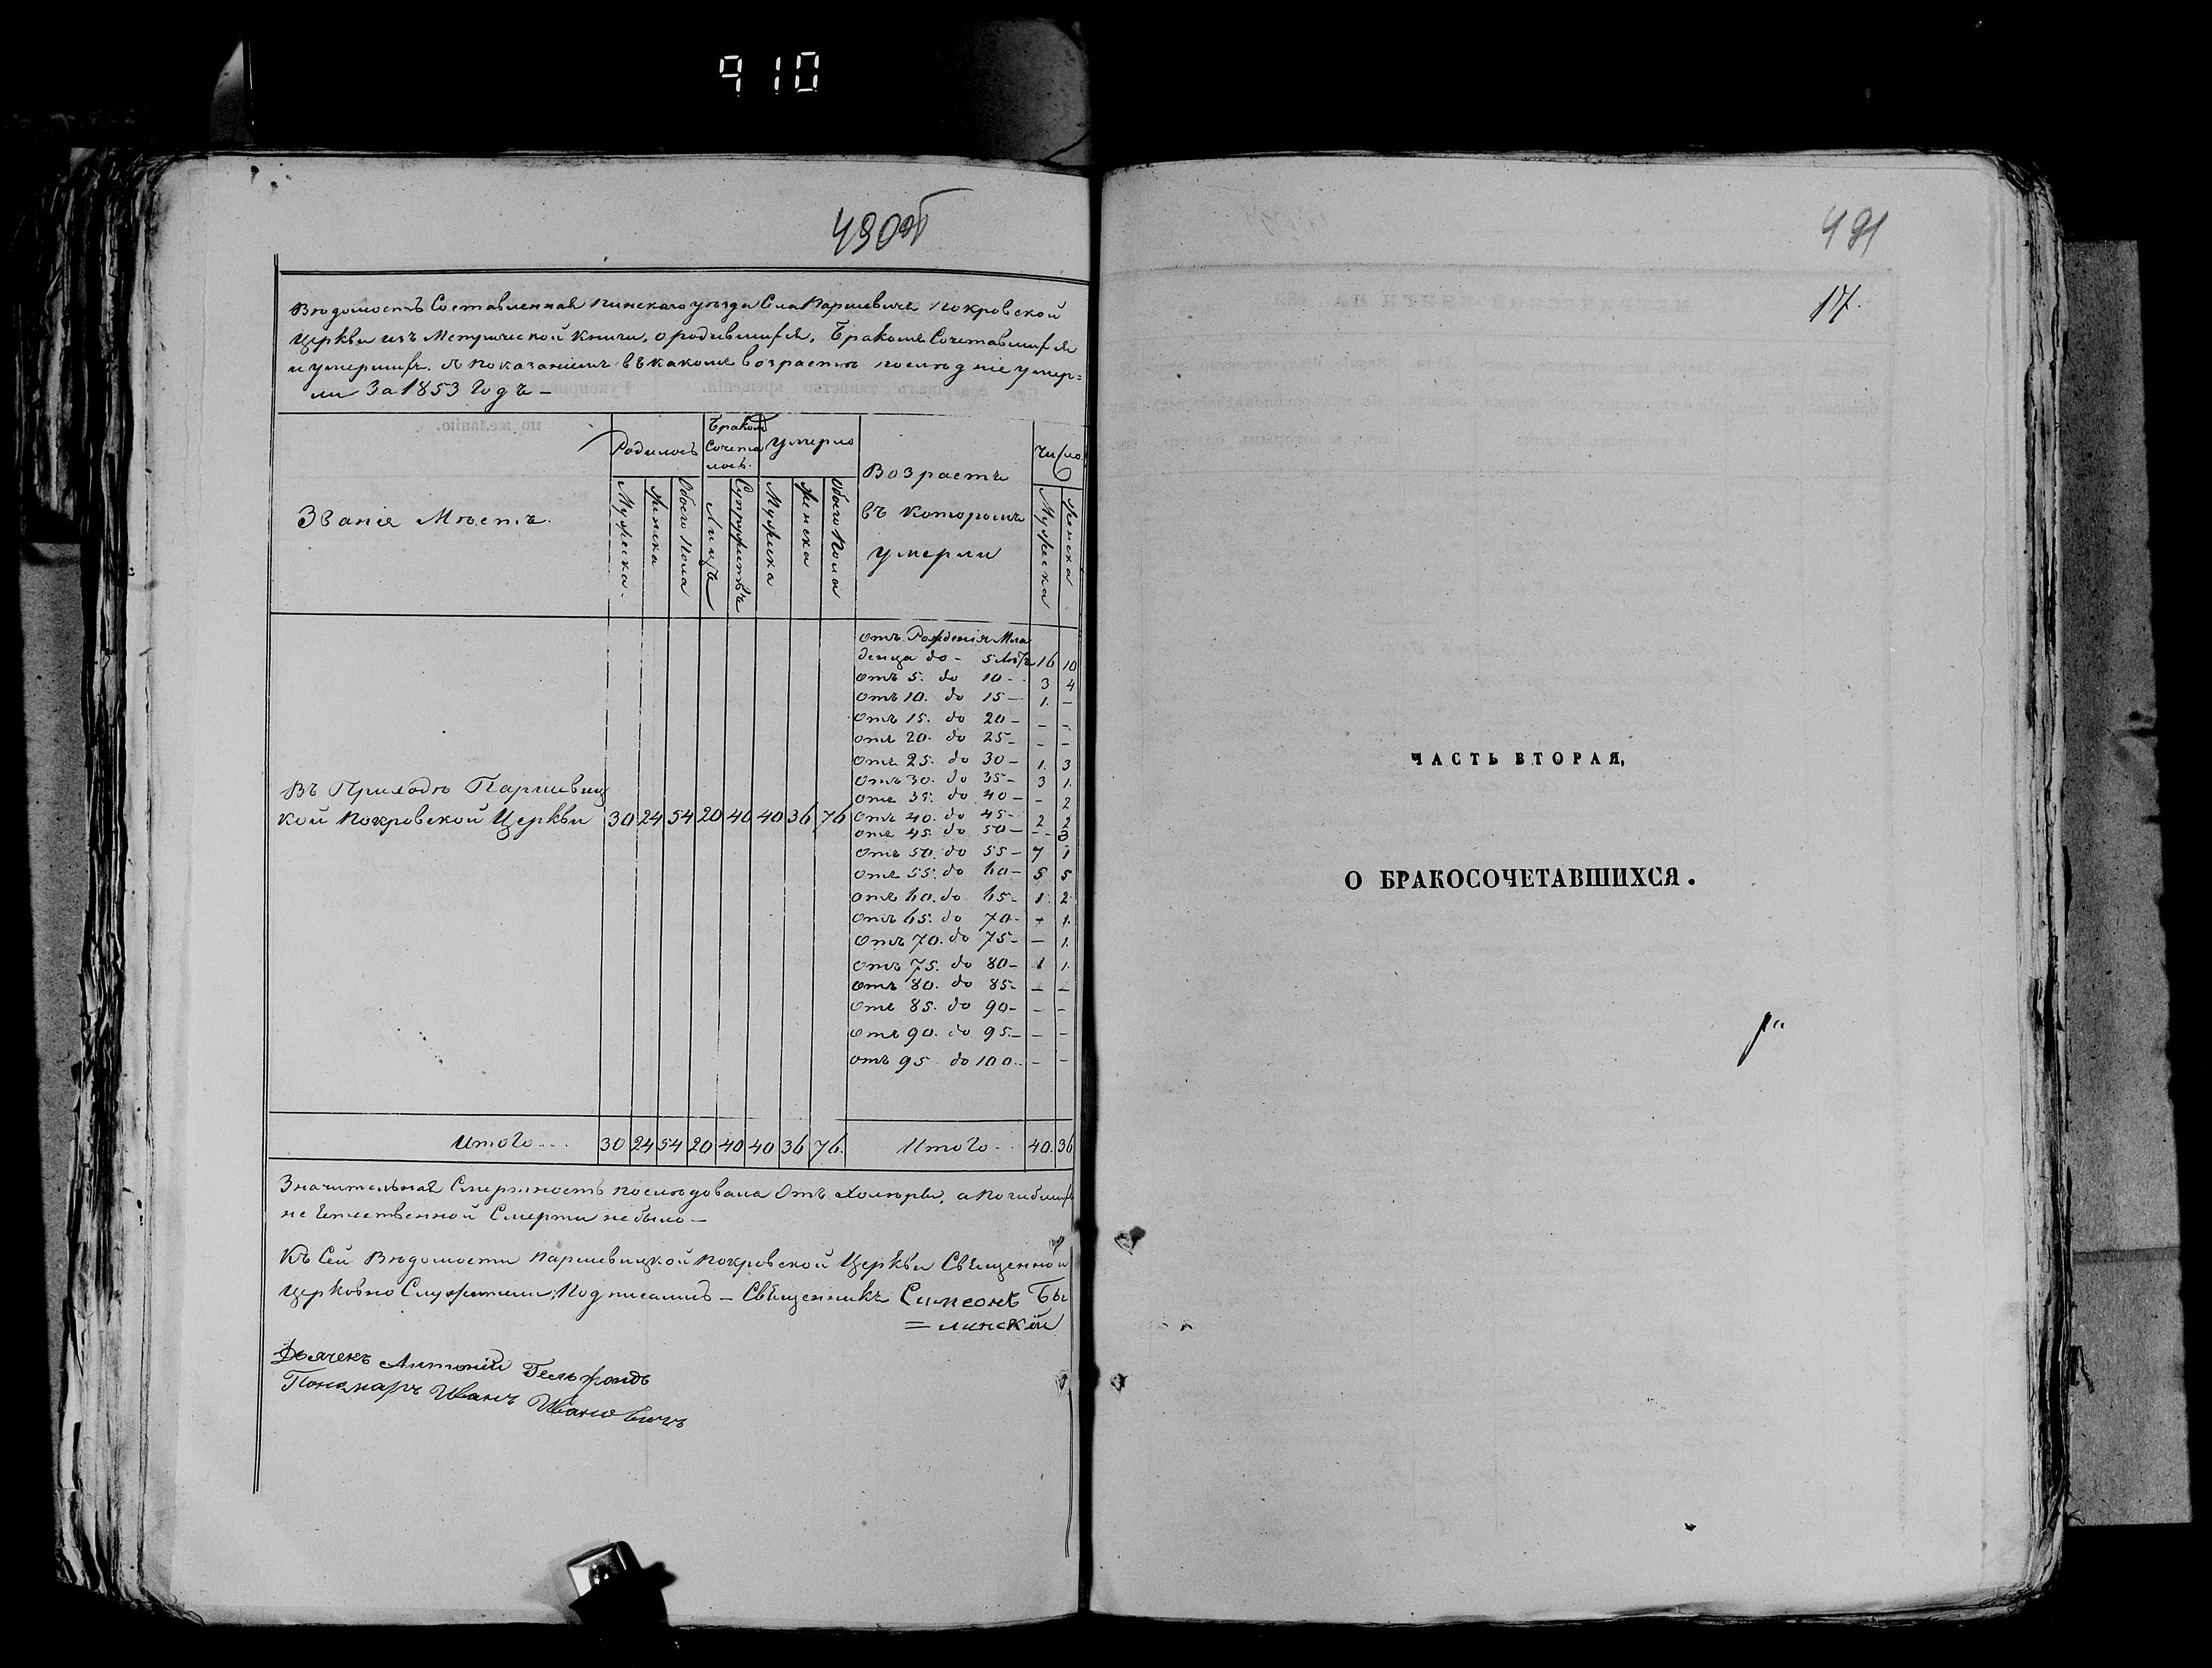 910
490об
Вѣдомость Составленная Пинскаго уѣзда Села Паршевичъ Покровской
Церкви изъ Метрической Книги, о родившихся, Бракомъ Сочетавшихся
и умершихъ. Съ Показаніемъ въ какомъ возрастѣ послѣдніе умер=
ли За 1853 Годъ –
Званія Мѣстъ.
Родилось
Бракомъ Сочета лось.
умерло
Возрастъ въ которомъ умерли
Число
Мужеска. Женска Обоего Пола Лицъ Супружествъ Мужеска Женска Обоего Пола Мужеска Женска
отъ Рожденія Мла
денца до – 5 Лѣтъ 16 10
отъ 5. до 10 – 3 4
отъ 10. до 15 – 1. –
отъ 15. до 20 – – –
отъ 20. до 25 – – –
отъ 25. до 30 – 1. 3
отъ 30. до 35 – 3 1.
отъ 35. до 40 – – 2
отъ 40. до 45 – 2 2
отъ 45. до 50 – – 3
отъ 50. до 55 – 7 1
отъ 55. до 60 – 5 5
отъ 60. до 65 – 1. 2
отъ 65. до 70 – – 1.
отъ 70. до 75 – – 1.
отъ 75. до 80 – 1 1.
отъ 80. до 85 – – –
отъ 85. до 90 – – –
отъ 90. до 95 – – –
отъ 95 до 100. – –
Въ Приходѣ Паршевиц
кой Покровской Церкви 30 24 54 20 40 40 36 76
Итого 30 24 54 20 40 40 36 76. Итого 40. 36
Значительная Смертность послѣдовала Отъ Холеры, а Погибшихъ
не Естественной Смерти не было –
Къ Сей Вѣдомости Паршевицкой Покровской Церкви Священно и
Церковно Служители Подписались – Священникъ Симеонъ Бы
= линскій
Дьячекъ Антоній Гельфондъ
Пономаръ Иванъ Ивановичъ
491
17.
ЧАСТЬ ВТОРАЯ,
О БРАКОСОЧЕТАВШИХСЯ.